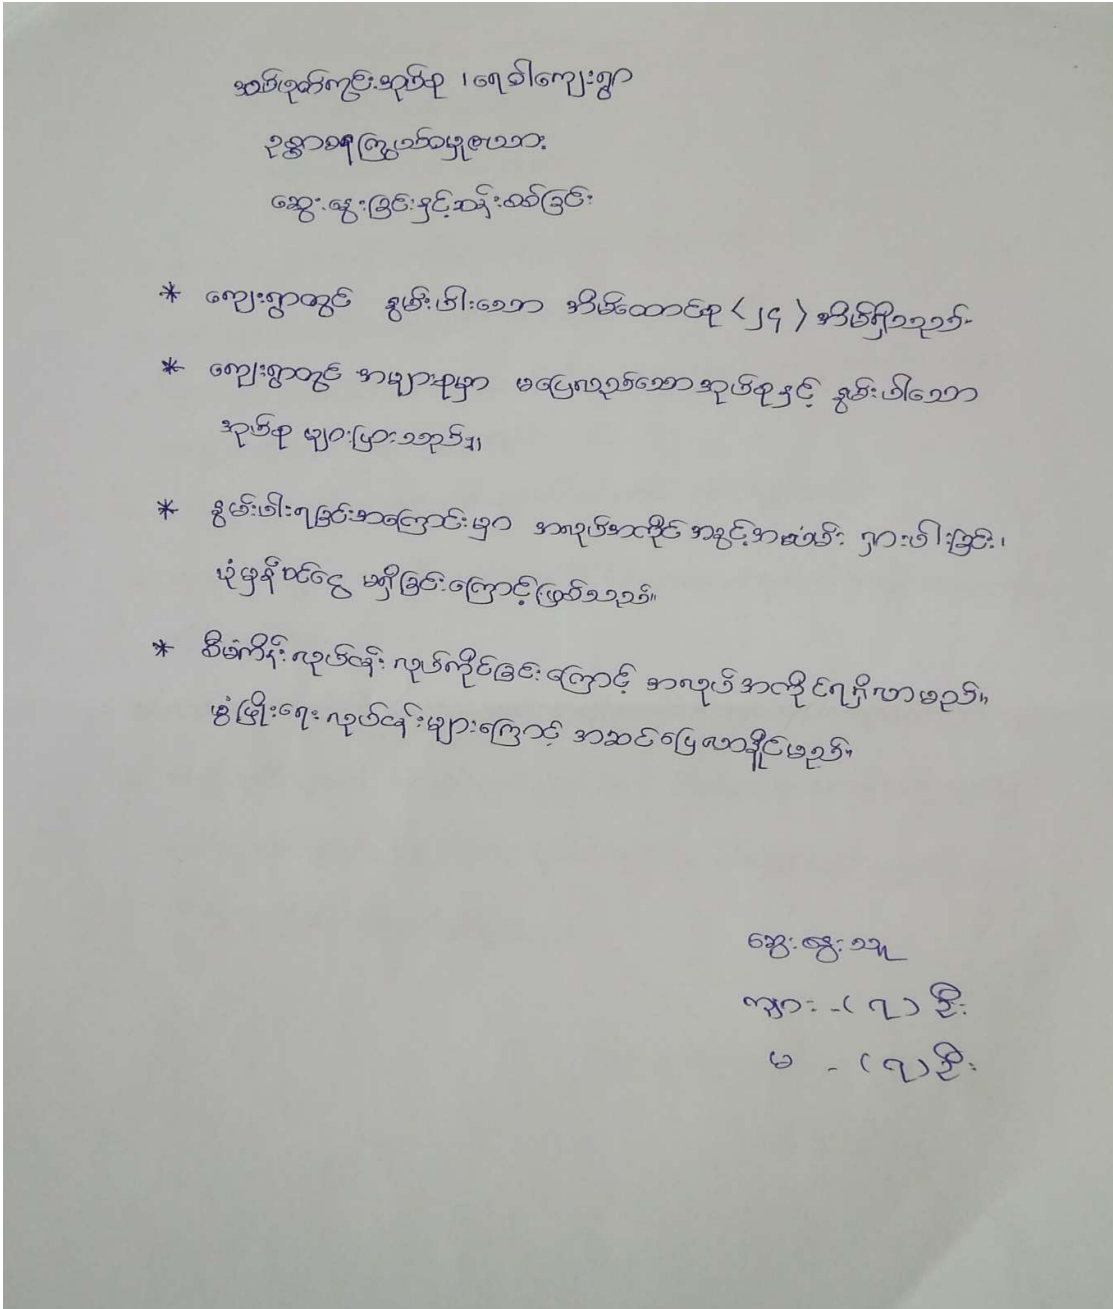 ထမ်ဖုတ်ကွင်းအုပ်စု ၊ ရေဝါကျေးရွာ
ဥစ္စာဓနကြွယ်ဝမှုဇယား
ဆွေးနွေးခြင်းနှင့်ဆန်းစစ်ခြင်း
* ကျေးရွာတွင် နွမ်းပါးသော အိမ်ထောင်စု (၂၄) အိမ်ရှိသည်။
* ကျေးရွာတွင် အများစုမှာ မပြေလည်သောအုပ်စုနှင့် နွမ်းပါးသော
အုပ်စု များပြားသည်။
* နွမ်းပါးရခြင်းအကြောင်းမှာ အလုပ်အကိုင် အခွင့်အလမ်း ရှားပါးခြင်း၊
ပုံမှန်ဝင်ငွေ မရှိခြင်းကြောင့်ဖြစ်သည်။
* စီမံကိန်းလုပ်ငန်း လုပ်ကိုင်ခြင်းကြောင့် အလုပ်အကိုင်ရရှိလာမည်။
ဖွံ့ဖြိုးရေးလုပ်ငန်းများကြောင့် အဆင်ပြေလာနိုင်မည်။
ဆွေးနွေးသူ
ကျား - (၇) ဦး
မ - (၇) ဦး